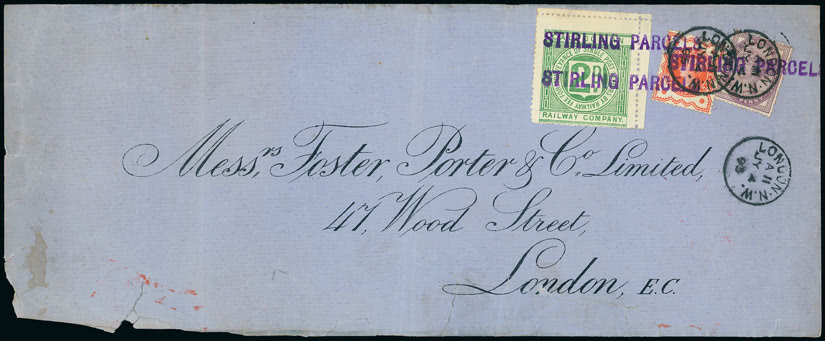 STIRLING PARCELS
STIRLING PARCELS
ST RLING PARCELS
2D
RAILWAY COMPANY.
LONDON·N.W.
LONDON·N.W.
LONDON·N.W.
A 11
JY 4
Messrs Foster, Porter & Co Limited,
47, Wood Street,
London, E.C.